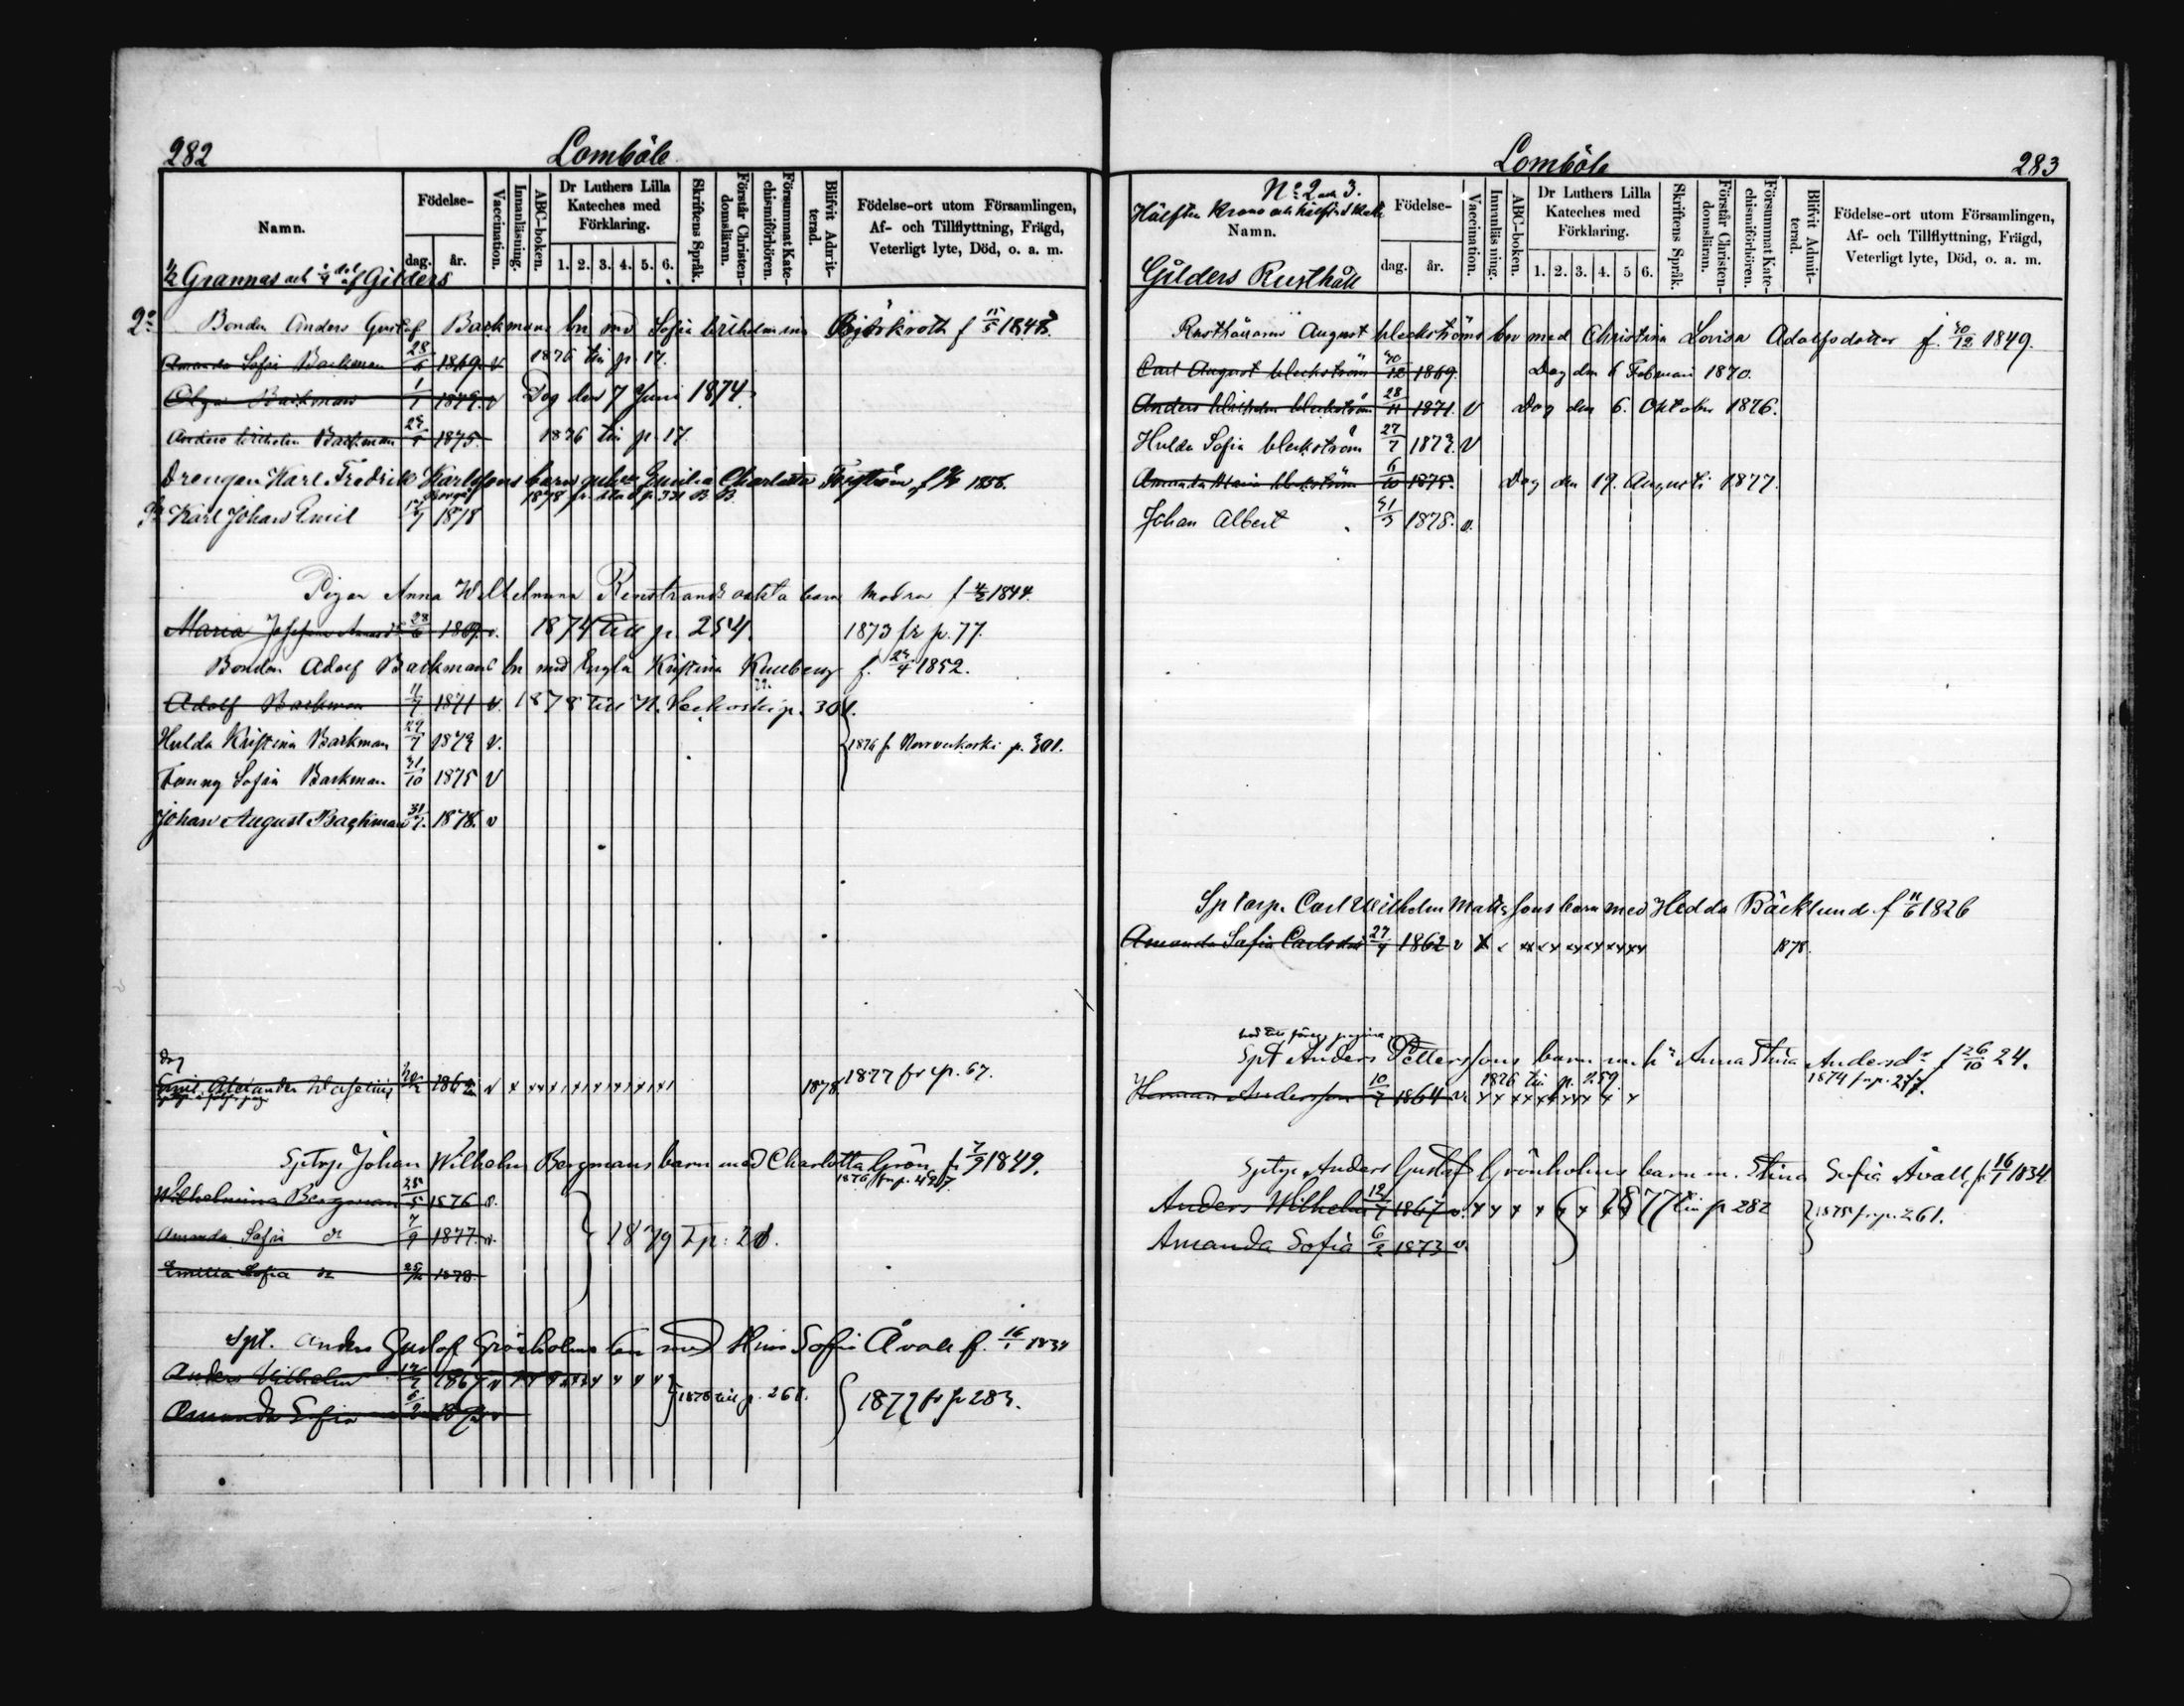 282
Lomböle
Namn.
Födelse-
dag.
år.
Vaccination.
Innanläsning.
ABC-boken.
Dr Luthers Lilla
Kateches med
Förklaring.
1. 2. 3. 4. 5. 6.
Skriftens Språk.
Förstår Christen-
domsläran.
Försummat Kate-
chismiförhören.
Blifvit Admit-
terad.
Födelse-ort utom Församlingen,
Af- och Tillflyttning, Frägd,
Veterligt lyte, Död, o. a. m.
1/2 Grannas och del af Gilders
Bonden Anders Gustaf Backmans bn med Sofia Wilhelmina f 15/5 184
Amanda Sofia Backman 28/5 1869. v 1876 till p. 17.
Olga Backman 1/1 187 v Dog den 7 Juni 1874.
Anders Wilhelm Backman 1875. 1876 till p. 17.
Drengen Karl Fredrik Karlssons barn Emilia Charlotta f 1856.
Karl Johan Emil 1878
Pigan Anna Wilhelmina Renstrands oäkta barn Modren f 1844.
Maria Josefina 28/6 1869. v. 1874 till p. 254. 1873 fr p. 77.
Bonden Adolf Backmans bn med Engla Kristina Kullberg f. 1852.
Adolf Backman 1871 v. 1878 till N. Veckoski p. 301.
Hulda Kristina Backman 29/7 1873 v. 1876 fr Norrveckoski p. 301.
Fanny Sofia Backman 31/10 1875 v
Johan August Backman 31/7. 1878. v
Emil Alexander Waselius 1862 v x x x x x x x x x 1878. 1877 fr p. 67.
Sptrp. Johan Wilhelm Bergmans barn med Charlotta Grön f. 7/9 1849.
Wilhelmina Bergman 25/5 1876 v.
Amanda Sofia 7/9 1877. v. 1879 T. p. 20.
Emilia Sofia 1878.
Spt. Anders Gustaf Grönholms bn med Stina Sofia Åvall f. 16/1 1834
Anders Vilhelm 12/7 1867 v x x x x x x x x 1878 till p. 261. 1877 fr p 283.
Amanda Sofia 6/2 1873 v
Lomböle
283
No 2 och 3.
Hälften Krono och hälften Skatte
Namn.
Gilders Rusthåll
Födelse-
dag.
år.
Vaccination.
Innanläsning.
ABC-boken.
Dr Luthers Lilla
Kateches med
Förklaring.
1. 2. 3. 4. 5 6.
Skriftens Språk.
Förstår Christen-
domsläran.
Försummat Kate-
chismiförhören.
Blifvit Admit-
terad.
Födelse-ort utom Församlingen,
Af- och Tillflyttning, Frägd,
Veterligt lyte, Död, o. a. m.
August Weckströms bn med Christina Lovisa Adolfsdotter f. 30/12 1849.
Carl August Weckström 30/12 1869. Dog den 6 Februari 1870.
Anders Wilhelm Weckström 28/11 1871. v Dog den 6. Oktober 1876.
Hulda Sofia Weckström 27/7 1873. v
Amanda Maria Weckström 6/10 1875. Dog den 17. Augusti 1877.
Johan Albert 31/3 1878. v.
Sp torp. Carl Wilhelm Matts sons barn med Hedda Bäcklund f 11/6 1826
Amanda Sofia Carlsdr 27/9 1862 v x x x x x x x x x 1878.
Spt Anders Petterssons barn m. h. Anna Stina Andersdr f 26/10 24.
1876 till p. 259. 1874 fr p. 277.
Herman Andersson 10/7 1864 v. x x x x x x x x x
Sptrp Anders Gustaf Grönholms barn m. Stina Sofia Åvall f. 16/1 1834.
Anders Wilhelm 12/7 1867 v. x x x x x x 1877 till p 282 1875 fr p. 261.
Amanda Sofia 6/2 1873 v.